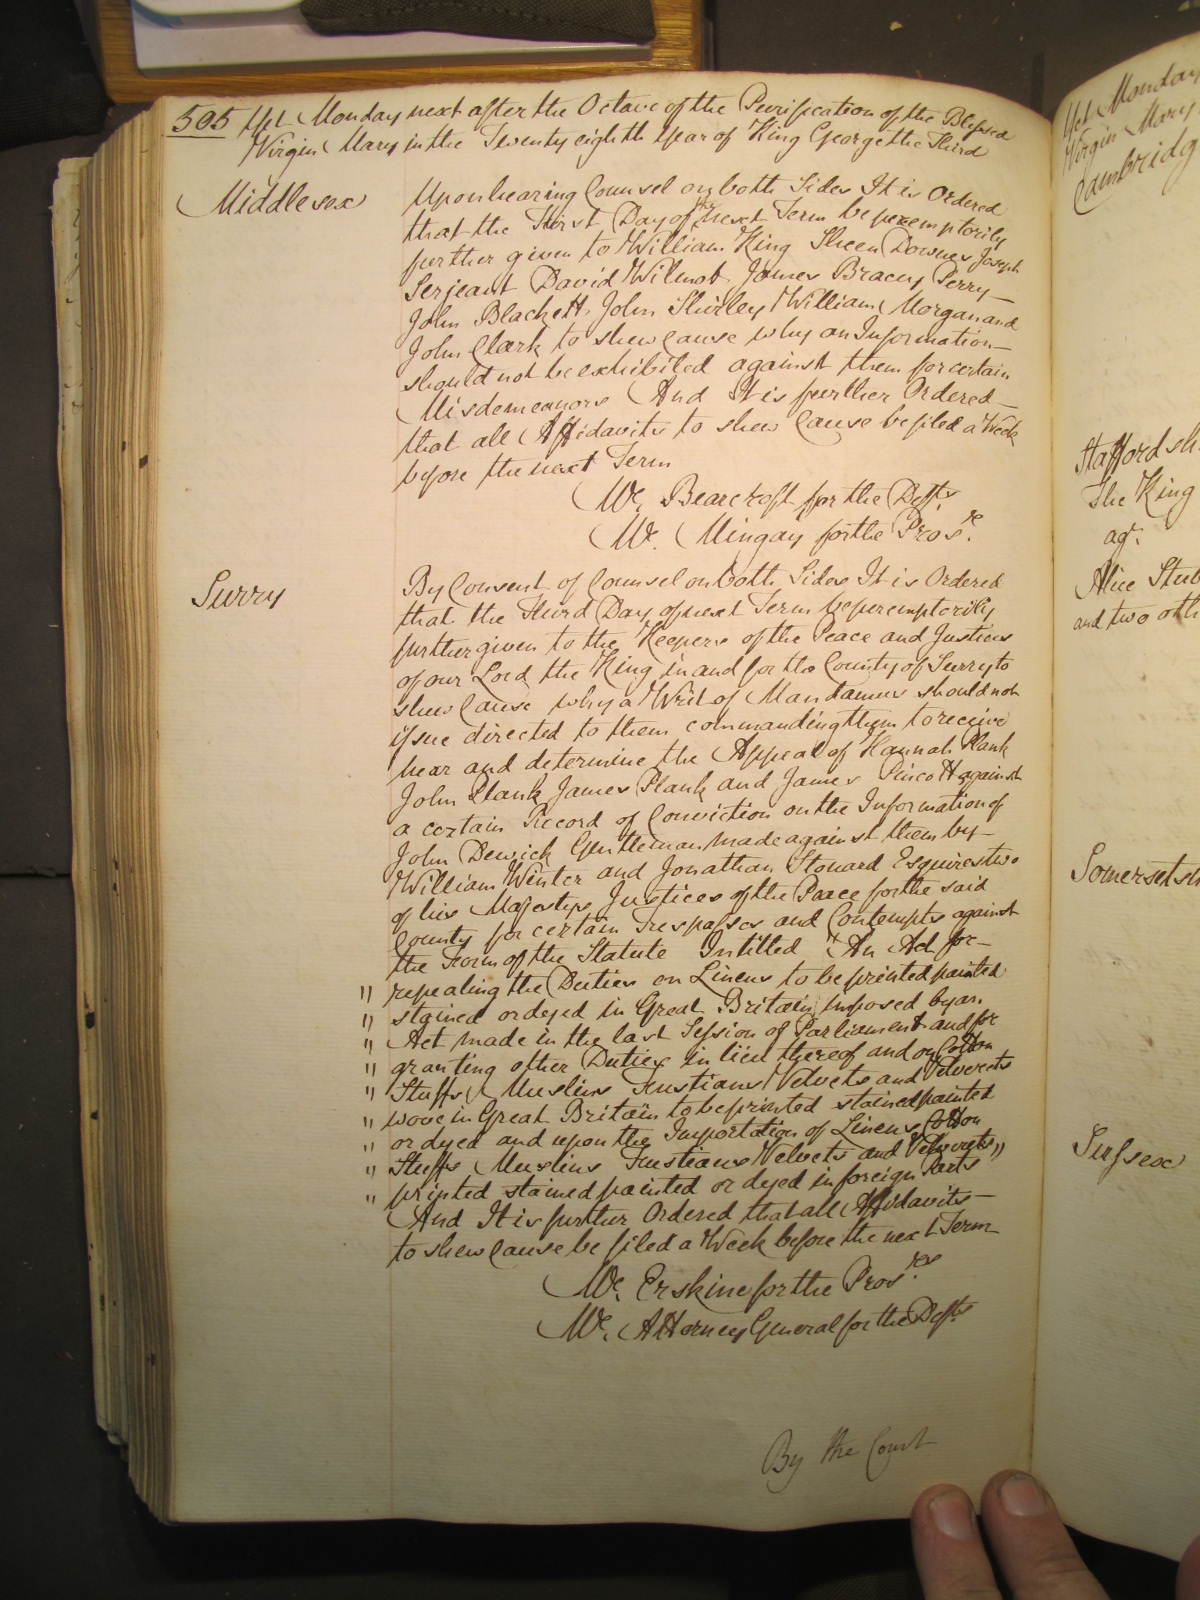 505 Yet Monday next after the Octave of the Purification of the Blessed
Virgin Mary in the Twenty eighth Year of King George the Third
Middlesex
Upon hearing Counsel on both Sides It is Ordered
that the First Day of the next Term be peremptorily
further given to William King Sheen Downes Joseph
Serjeant David Wilmot James Bracey Perry
John Blackett John Shirley William Morgan and
John Clark to shew Cause why an Information
should not be exhibited against them for certain
Misdemeanors And It is further Ordered
that all Affidavits to shew Cause be filed a Week
before the next Term
Mr. Bearcroft for the Defts.
Mr. Mingay for the Prosr.
Surry
By Consent of Counsel on both Sides It is Ordered
that the Third Day of next Term be peremptorily
further given to the Keepers of the Peace and Justices
of our Lord the King in and for the County of Surry to
shew Cause why a Writ of Mandamus should not
issue directed to them commanding them to receive
hear and determine the Appeal of Hannah Plank
John Plank James Plank and James Pincott against
a certain Record of Conviction on the Information of
John Dewick Gentleman made against them by
William Winter and Jonathan Stonard Esquires two
of his Majestys Justices of the Peace for the said
County for certain Trespasses and Contempts against
the Form of the Statute Intitled "An Act for
" repealing the Duties on Linens to be printed painted
" stained or dyed in Great Britain imposed by an
" Act made in the last Session of Parliament and for
" granting other Duties in lieu thereof and on Cotton
" Stuffs Muslins Fustians Velvets and Velverets
" wove in Great Britain to be printed stained painted
" or dyed and upon the Importation of Linens Cotton
" Stuffs Muslins Fustians Velvets and Velverets
" printed stained painted or dyed in foreign Parts"
And It is further Ordered that all Affidavits
to shew Cause be filed a Week before the next Term
Mr. Erskine for the Prosrs.
Mr. Attorney General for the Defts.
By the Court
Yet Monday
Virgin Mary
Cambridg
Staffordsh
The King
agt.
Alice Stub
and two oth
Somersetsh
Sussex